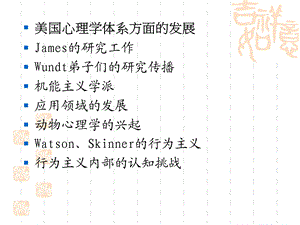 美国心理学体系方面的发展
James的研究工作
Wundt弟子们的研究传播
机能主义学派
应用领域的发展
动物心理学的兴起
Watson、Skinner的行为主义
行为主义内部的认知挑战
吉祥
如意